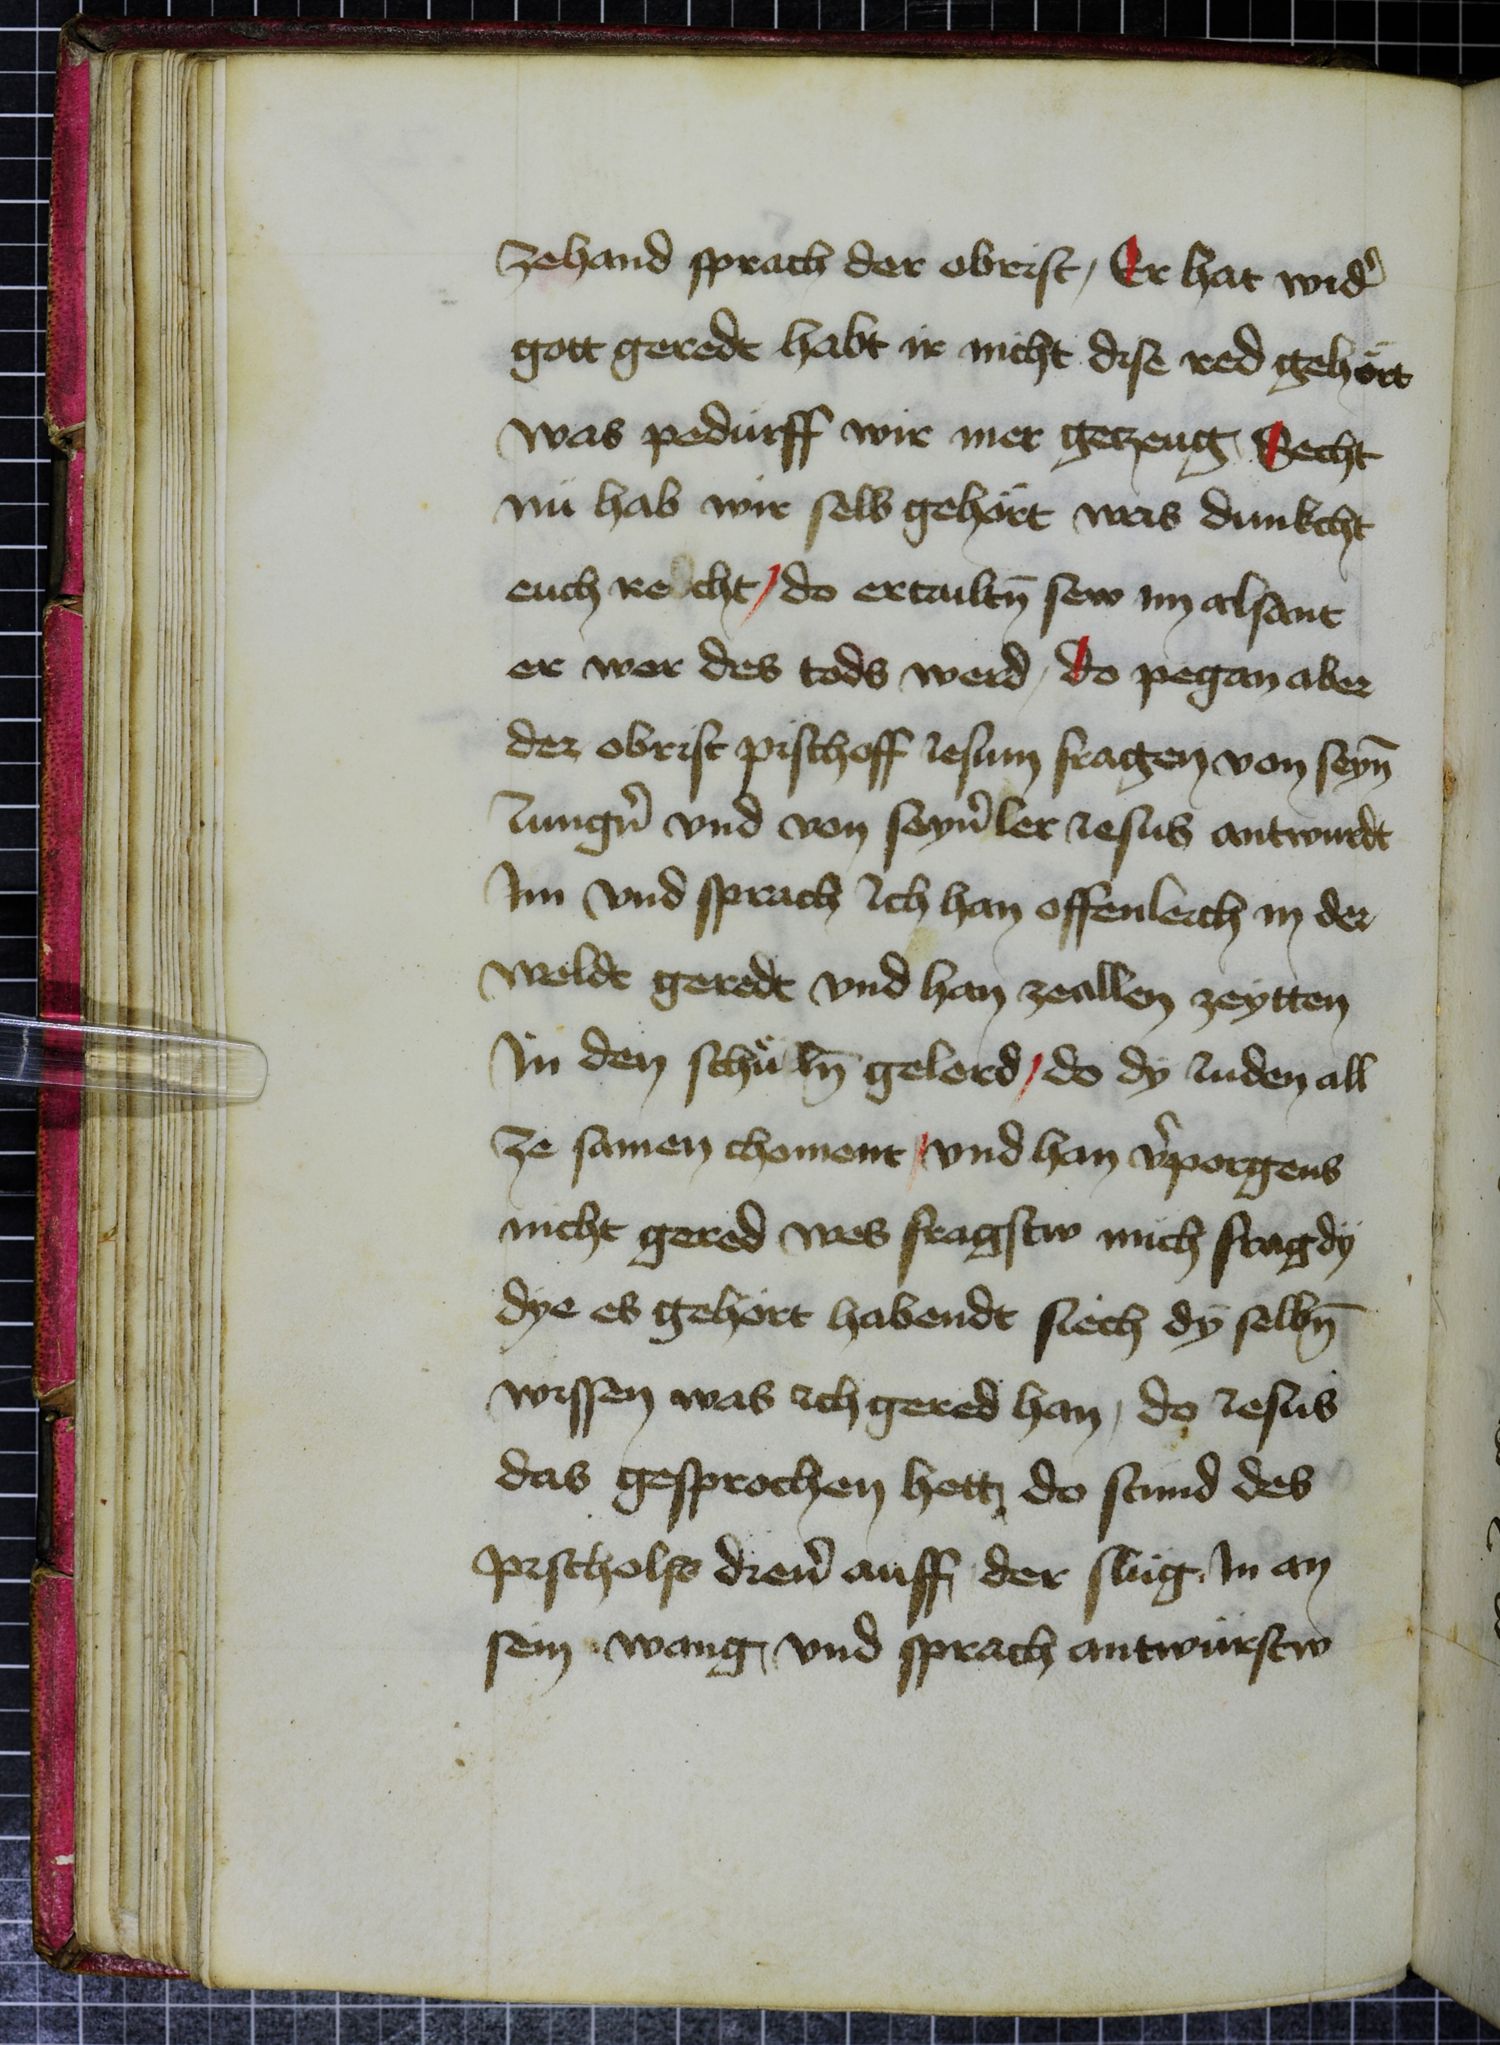 zehand sprach der obrist / Er hat wid̉
gott geredt habt ir nicht dise red gehört
was pedürff wir mer getzeug / Secht
nü hab wir selb gehört was dunkcht
euch recht / do ertailtn̄ sew im alsant
er wer des tods werd / do pegan aber
der obrist pischoff Jesum fragen von seyn̄
Jungn̉ vnd von seyn̉ ler Jesus antwurdt
Im vnd sprach Ich han offenleich in der
weldt geredt vnd han zeallen zeytten
In den schůln̄ gelerd / do dÿ Juden all
ze samen choment / vnd han v̉porgens
nicht gered wes fragstw mich frag dÿ
dye es gehört habendt siech dÿ selbn̄
wissen was ich gered han / do Jesus
das gesprochen hett / do stund des
pischolfs dien̉ auff / der slüg In an
sein wang / vnd sprach antwürstw